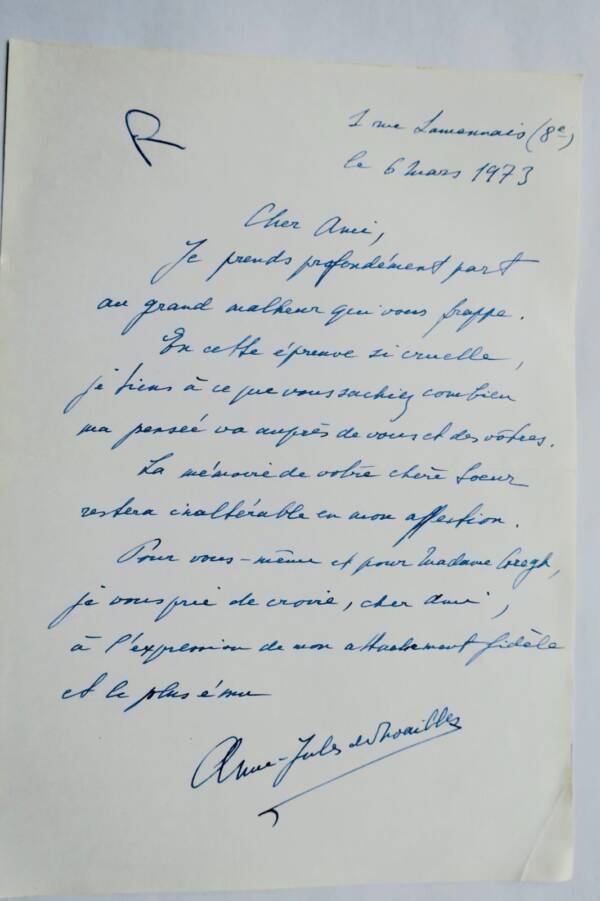 1 rue Lamennais (8e)
le 6 mars 1973
Cher Ami,
Je prends profondément part
au grand malheur qui vous frappe.
En cette épreuve si cruelle,
je tiens à ce que vous sachiez combien
ma pensée va auprès de vous et des vôtres.
La mémoire de votre chère Soeur
restera inaltérable en mon affection.
Pour vous-même et pour Madame Gregh,
je vous prie de croire, cher Ami,
à l'expression de mon attachement fidèle
et le plus ému
Anne-Jules de Noailles